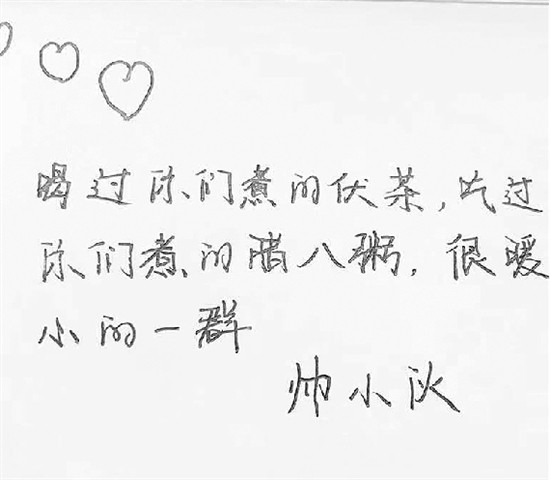 喝过你们煮的伏茶,吃过
你们煮的腊八粥,很暖
心的一群
帅小伙